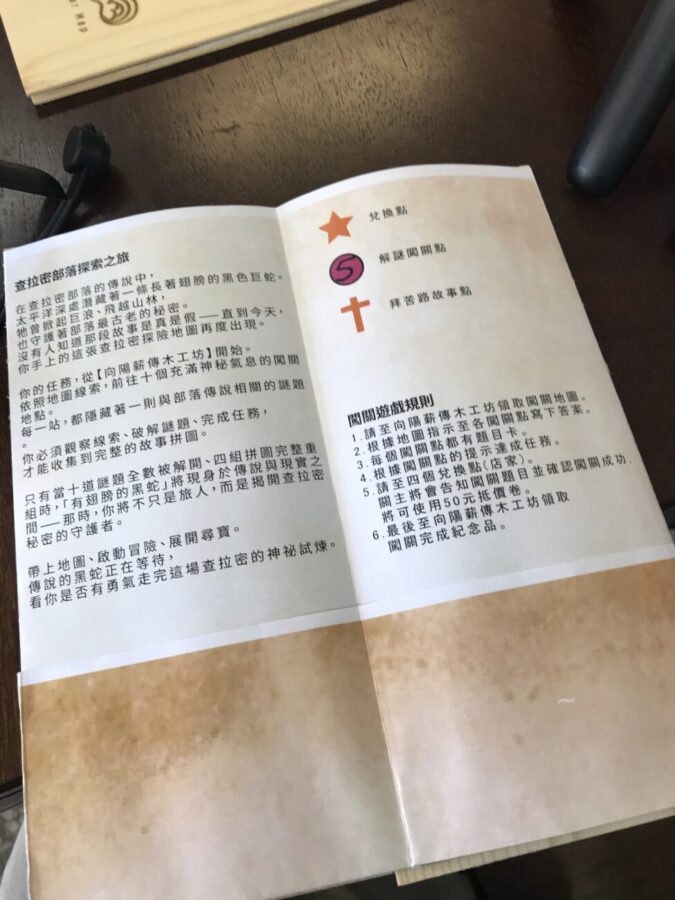 查拉密部落探索之旅
在查拉密部落的傳說中，
太平洋深處潛藏著一條長著翅膀的黑色巨蛇。
牠曾掀起巨浪、飛越山林，
也守護著部落最古老的秘密。
沒有人知道那段故事是真是假——直到今天，
你手上的這張查拉密探險地圖再度出現。
你的任務，從【向陽薪傳木工坊】開始。
依照地圖線索，前往十個充滿神秘氣息的闖關
地點。
每一站，都隱藏著一則與部落傳說相關的謎題
。
你必須觀察線索、破解謎題、完成任務，
才能收集到完整的故事拼圖。
只有當十道謎題全數被解開、四組拼圖完整重
組時，「有翅膀的黑蛇」將現身於傳說與現實之
間——那時，你將不只是旅人，而是揭開查拉密
秘密的守護者。
帶上地圖、啟動冒險、展開尋寶。
傳說的黑蛇正在等待，
看你是否有勇氣走完這場查拉密的神祕試煉。
兌換點
5
解謎闖關點
拜苦路故事點
闖關遊戲規則
1.請至向陽薪傳木工坊領取闖關地圖。
2.根據地圖指示至各闖關點寫下答案。
3.每個闖關點都有題目卡。
4.根據闖關點的提示達成任務。
5.請至四個兌換點(店家)。
關主將會告知闖關題目並確認闖關成功.
將可使用50元抵價卷。
6.最後至向陽薪傳木工坊領取
闖關完成紀念品。